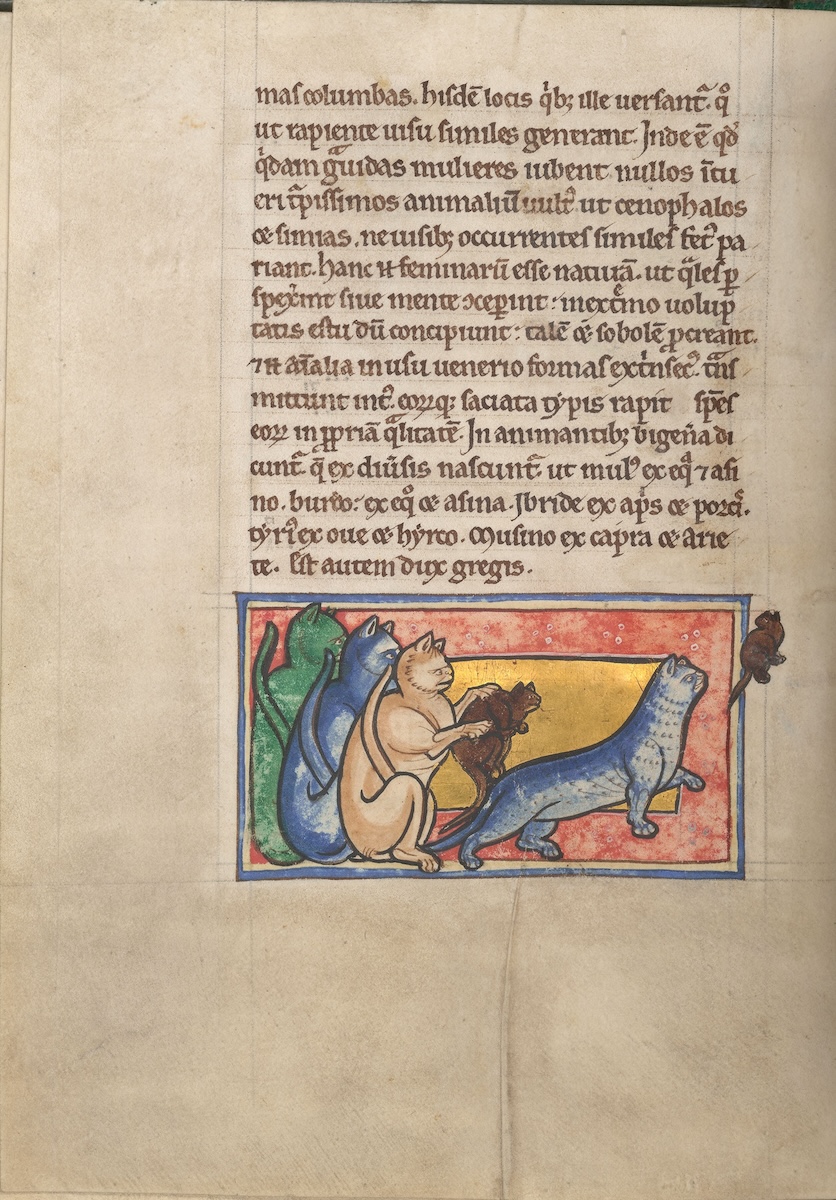 mas columbas. hisdē locis q̇bꝫ ille uersant᷑. qͦ
ut rapiente uisu similes generant. Inde ē qd̓
q̇dam gͣuidas mulieres iubent nullos ītu
eri t᷑pissimos animaliū uult᷒ ut cenophalos
⁊ simias. ne uisibꝫ occurrentes similes fet᷒ pa
riant. hanc .n. feminarū esse naturā. ut q̄les ꝑ
spex̄int siue mente ↄceꝑint: in ext̄mo uolup
tatis estu dū concipiunt: talē ⁊ sobolē ꝓcreant.
⁊ .n. aīalia in usu uenerio formas exṫnsec᷒. tͣns
mittunt int᷒. eoꝝqꝫ saciata typis rapit sp̄es
eoꝝ in ꝓpriā q̄litatē. In animantibꝫ bigeña di
cunt᷑. q̄ ex diu̓sis nascunt᷑. ut mul᷒ ex eqͣ ⁊ asi
no. burdo: ex eqͦ ⁊ asina. Ibride ex ap̄s ⁊ porcͥ.
tyri᷒ ex oue ⁊ hyrco. Musino ex capra ⁊ arie
te. Est autem dux gregis.